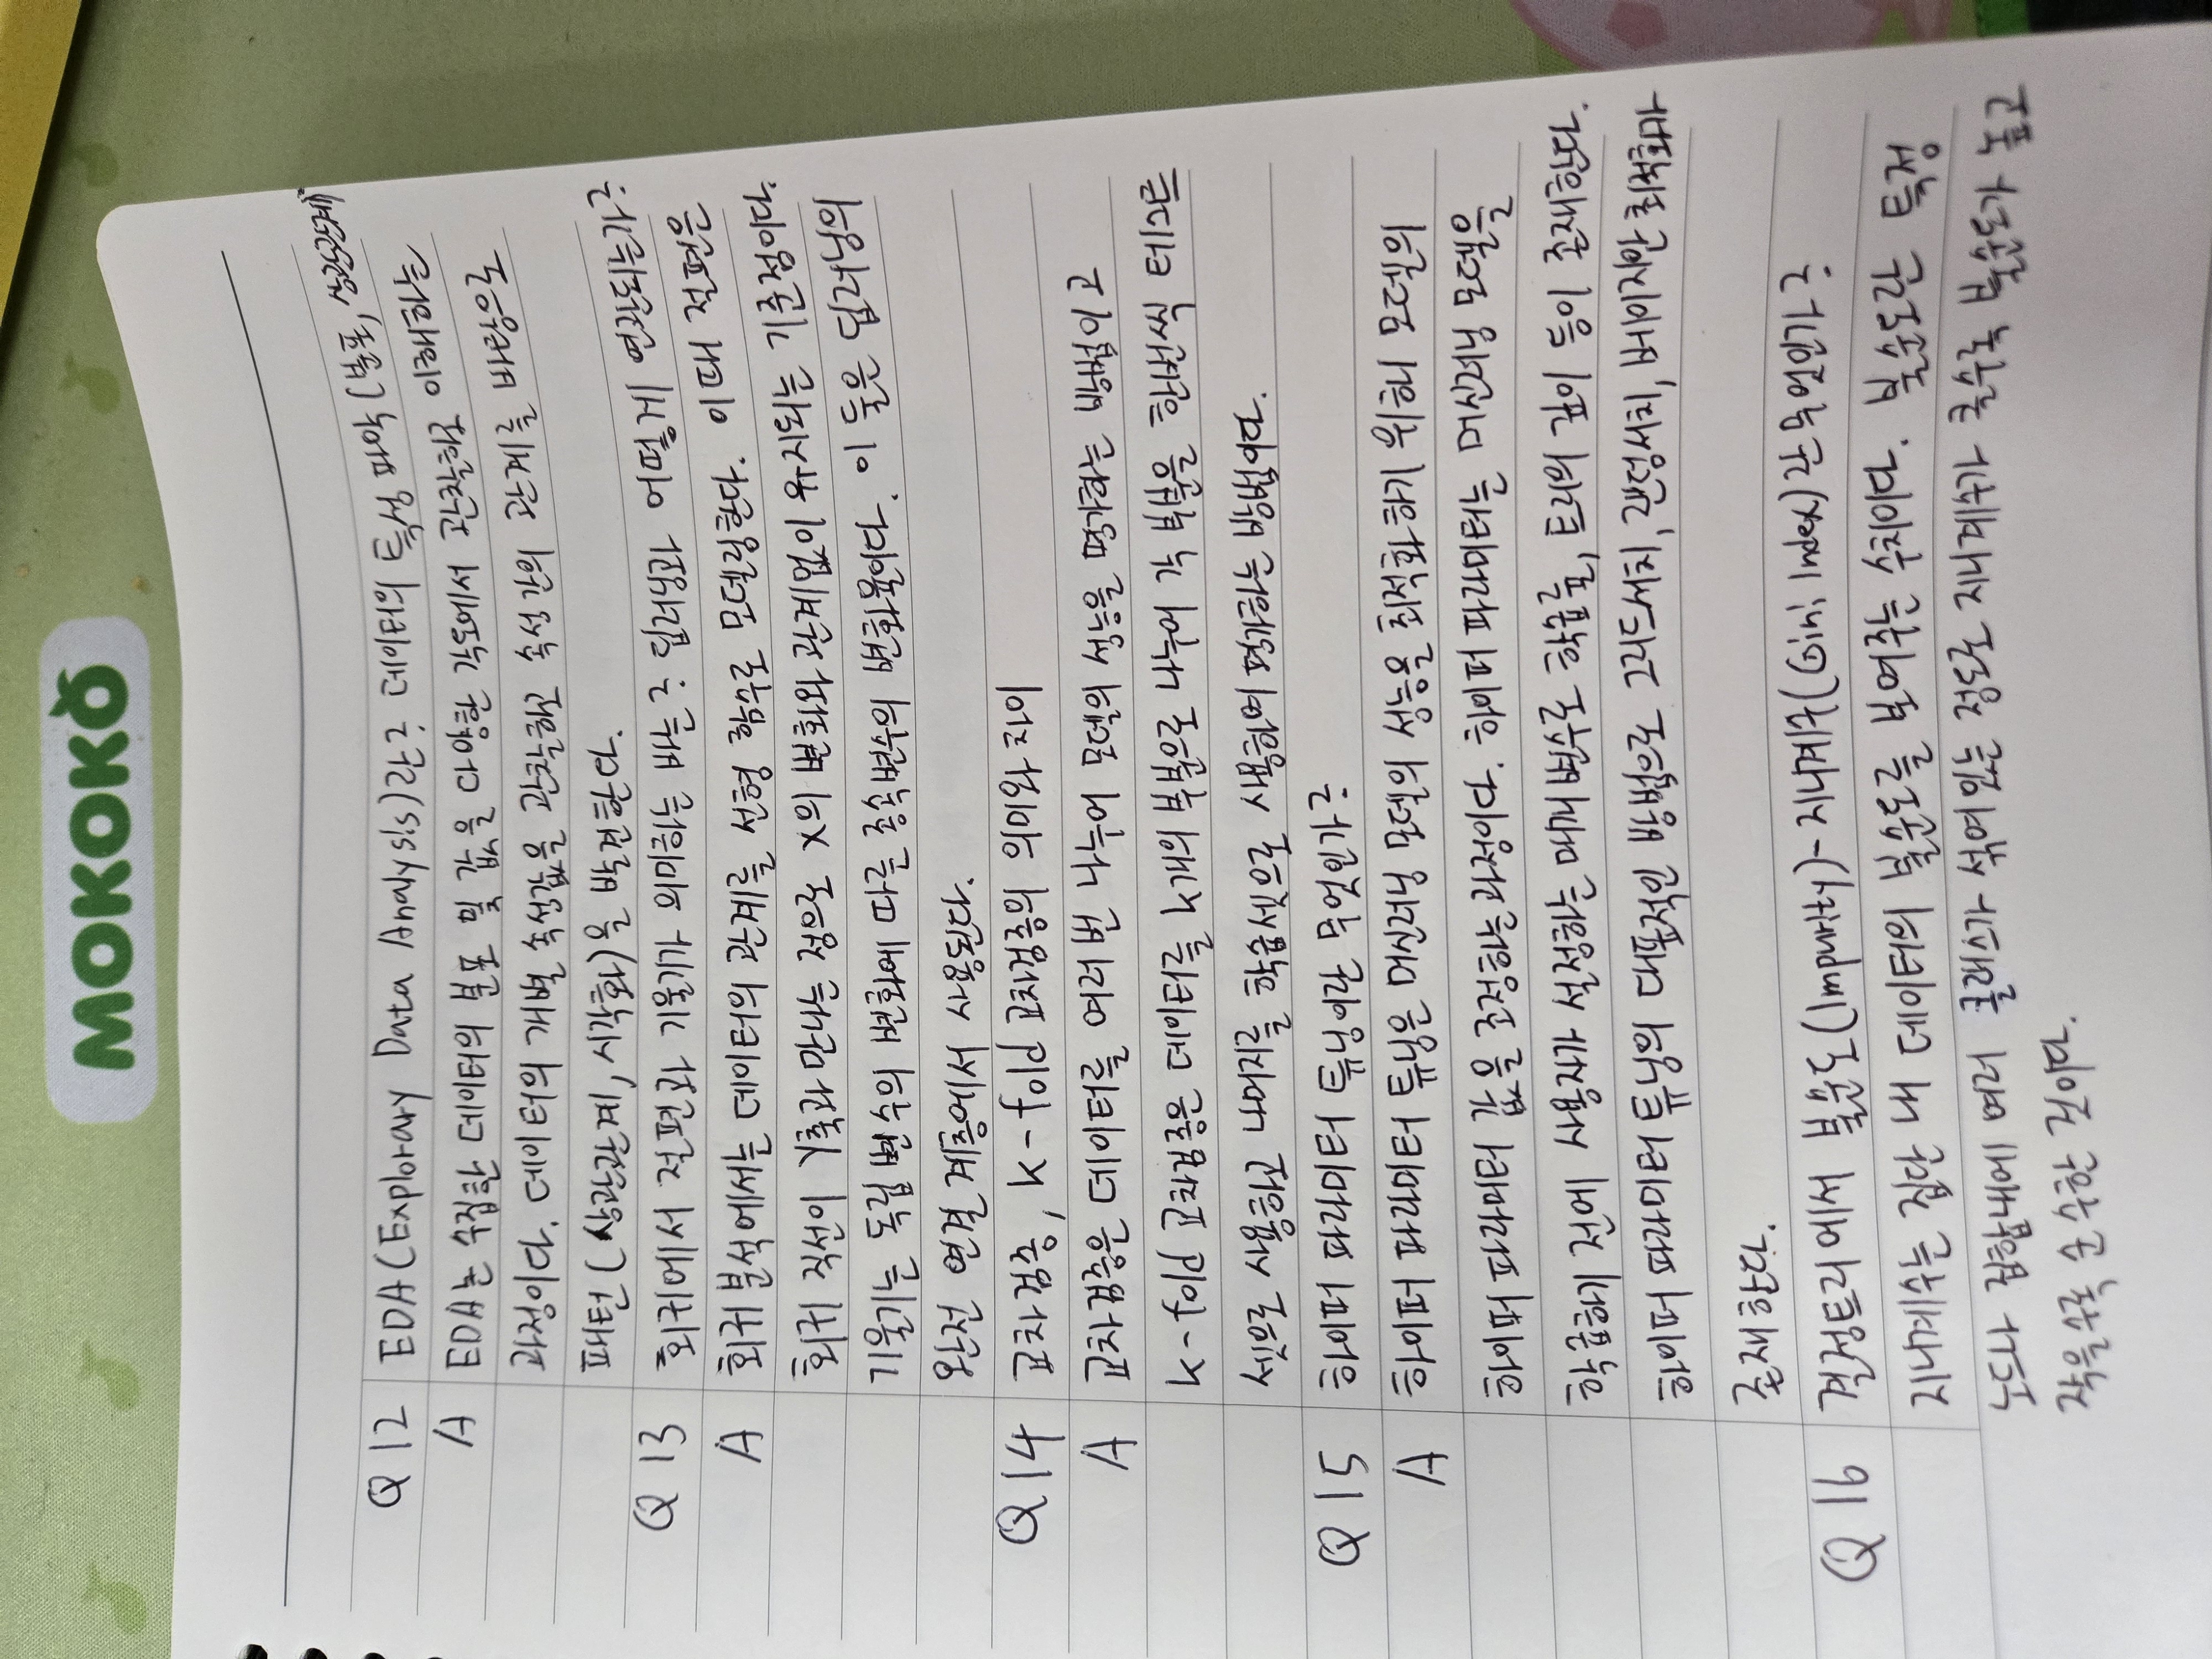 MOKOKO
Q 12 EDA(Explorary Data Analysis)란? 데이터의 특성 파악(분포, 상관관계)
A EDA는 수집한 데이터의 분포 및 값을 다양한 각도에서 관찰하고 이해하는
과정이다. 데이터의 개별 속성값을 관찰하고 속성 간의 관계를 바탕으로
패턴(상관관계, 시각화)을 발견한다.
Q 13 회귀에서 절편과 기울기가 의미하는 바는? 딥러닝과 어떻게 연관되는가?
A 회귀 분석에서는 데이터의 관계를 선형 함수로 모델링한다. 이때 절편은
회귀 직선이 Y축과 만나는 점으로 X의 변화와 관계없이 유지되는 기준점이다.
기울기는 독립 변수의 변화에 따른 종속변수의 변화율이다. 이 둘은 딥러닝의
완전 연결 계층에서 사용된다.
Q 14 교차검증, k-fold 교차검증의 의미와 차이
A 교차검증은 데이터를 여러번 나누어 모델의 성능을 평가하는 방법이고
k-fold 교차검증은 데이터를 k개의 부분으로 나누어 각 부분을 한번씩 테스트
셋으로 사용하고 나머지를 학습셋으로 사용하여 평가하는 방법이다.
Q 15 하이퍼 파라미터 튜닝이란 무엇인가?
A 하이퍼 파라미터 튜닝은 머신러닝 모델의 성능을 최적화하기 위해 모델의
하이퍼 파라미터 값을 조정하는 과정이다. 하이퍼 파라미터는 머신러닝 모델을
학습하기 전에 사용자가 설정하는 매개 변수로 학습률, 트리의 깊이 등이 존재한다.
하이퍼 파라미터 튜닝의 대표적인 방법으로 그리드서치, 랜덤서치, 베이지안 최적화가
존재한다.
Q 16 결정트리에서 불순도(Impurity)-지니계수(Gini Index)란 무엇인가?
지니계수는 집단 내 데이터의 불순도를 보여주는 수치이다. 불순도란 특정
노드나 집합내에 여러 클래스가 섞여있는 정도로 지니계수가 클수록 불순도가 높고
작을수록 순수한 것이다.